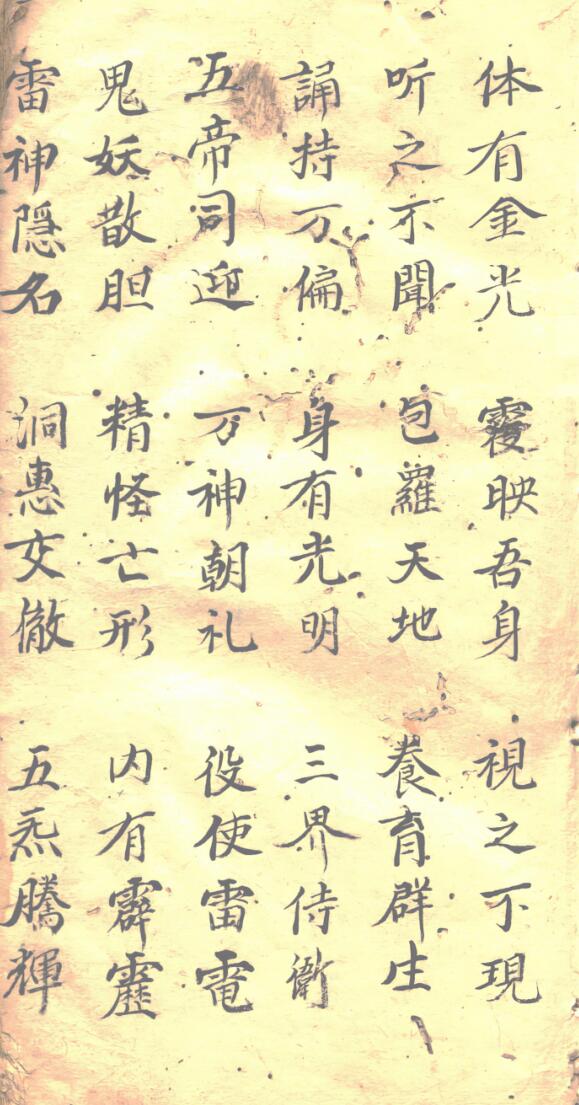 体有金光　覆映吾身　視之不現
听之不聞　包羅天地　養育群生
誦持万偏　身有光明　三界侍衛
五帝司迎　万神朝礼　役使雷電
鬼妖散胆　精怪亡形　内有霹靂
雷神隠名　洞惠交徹　五炁騰輝